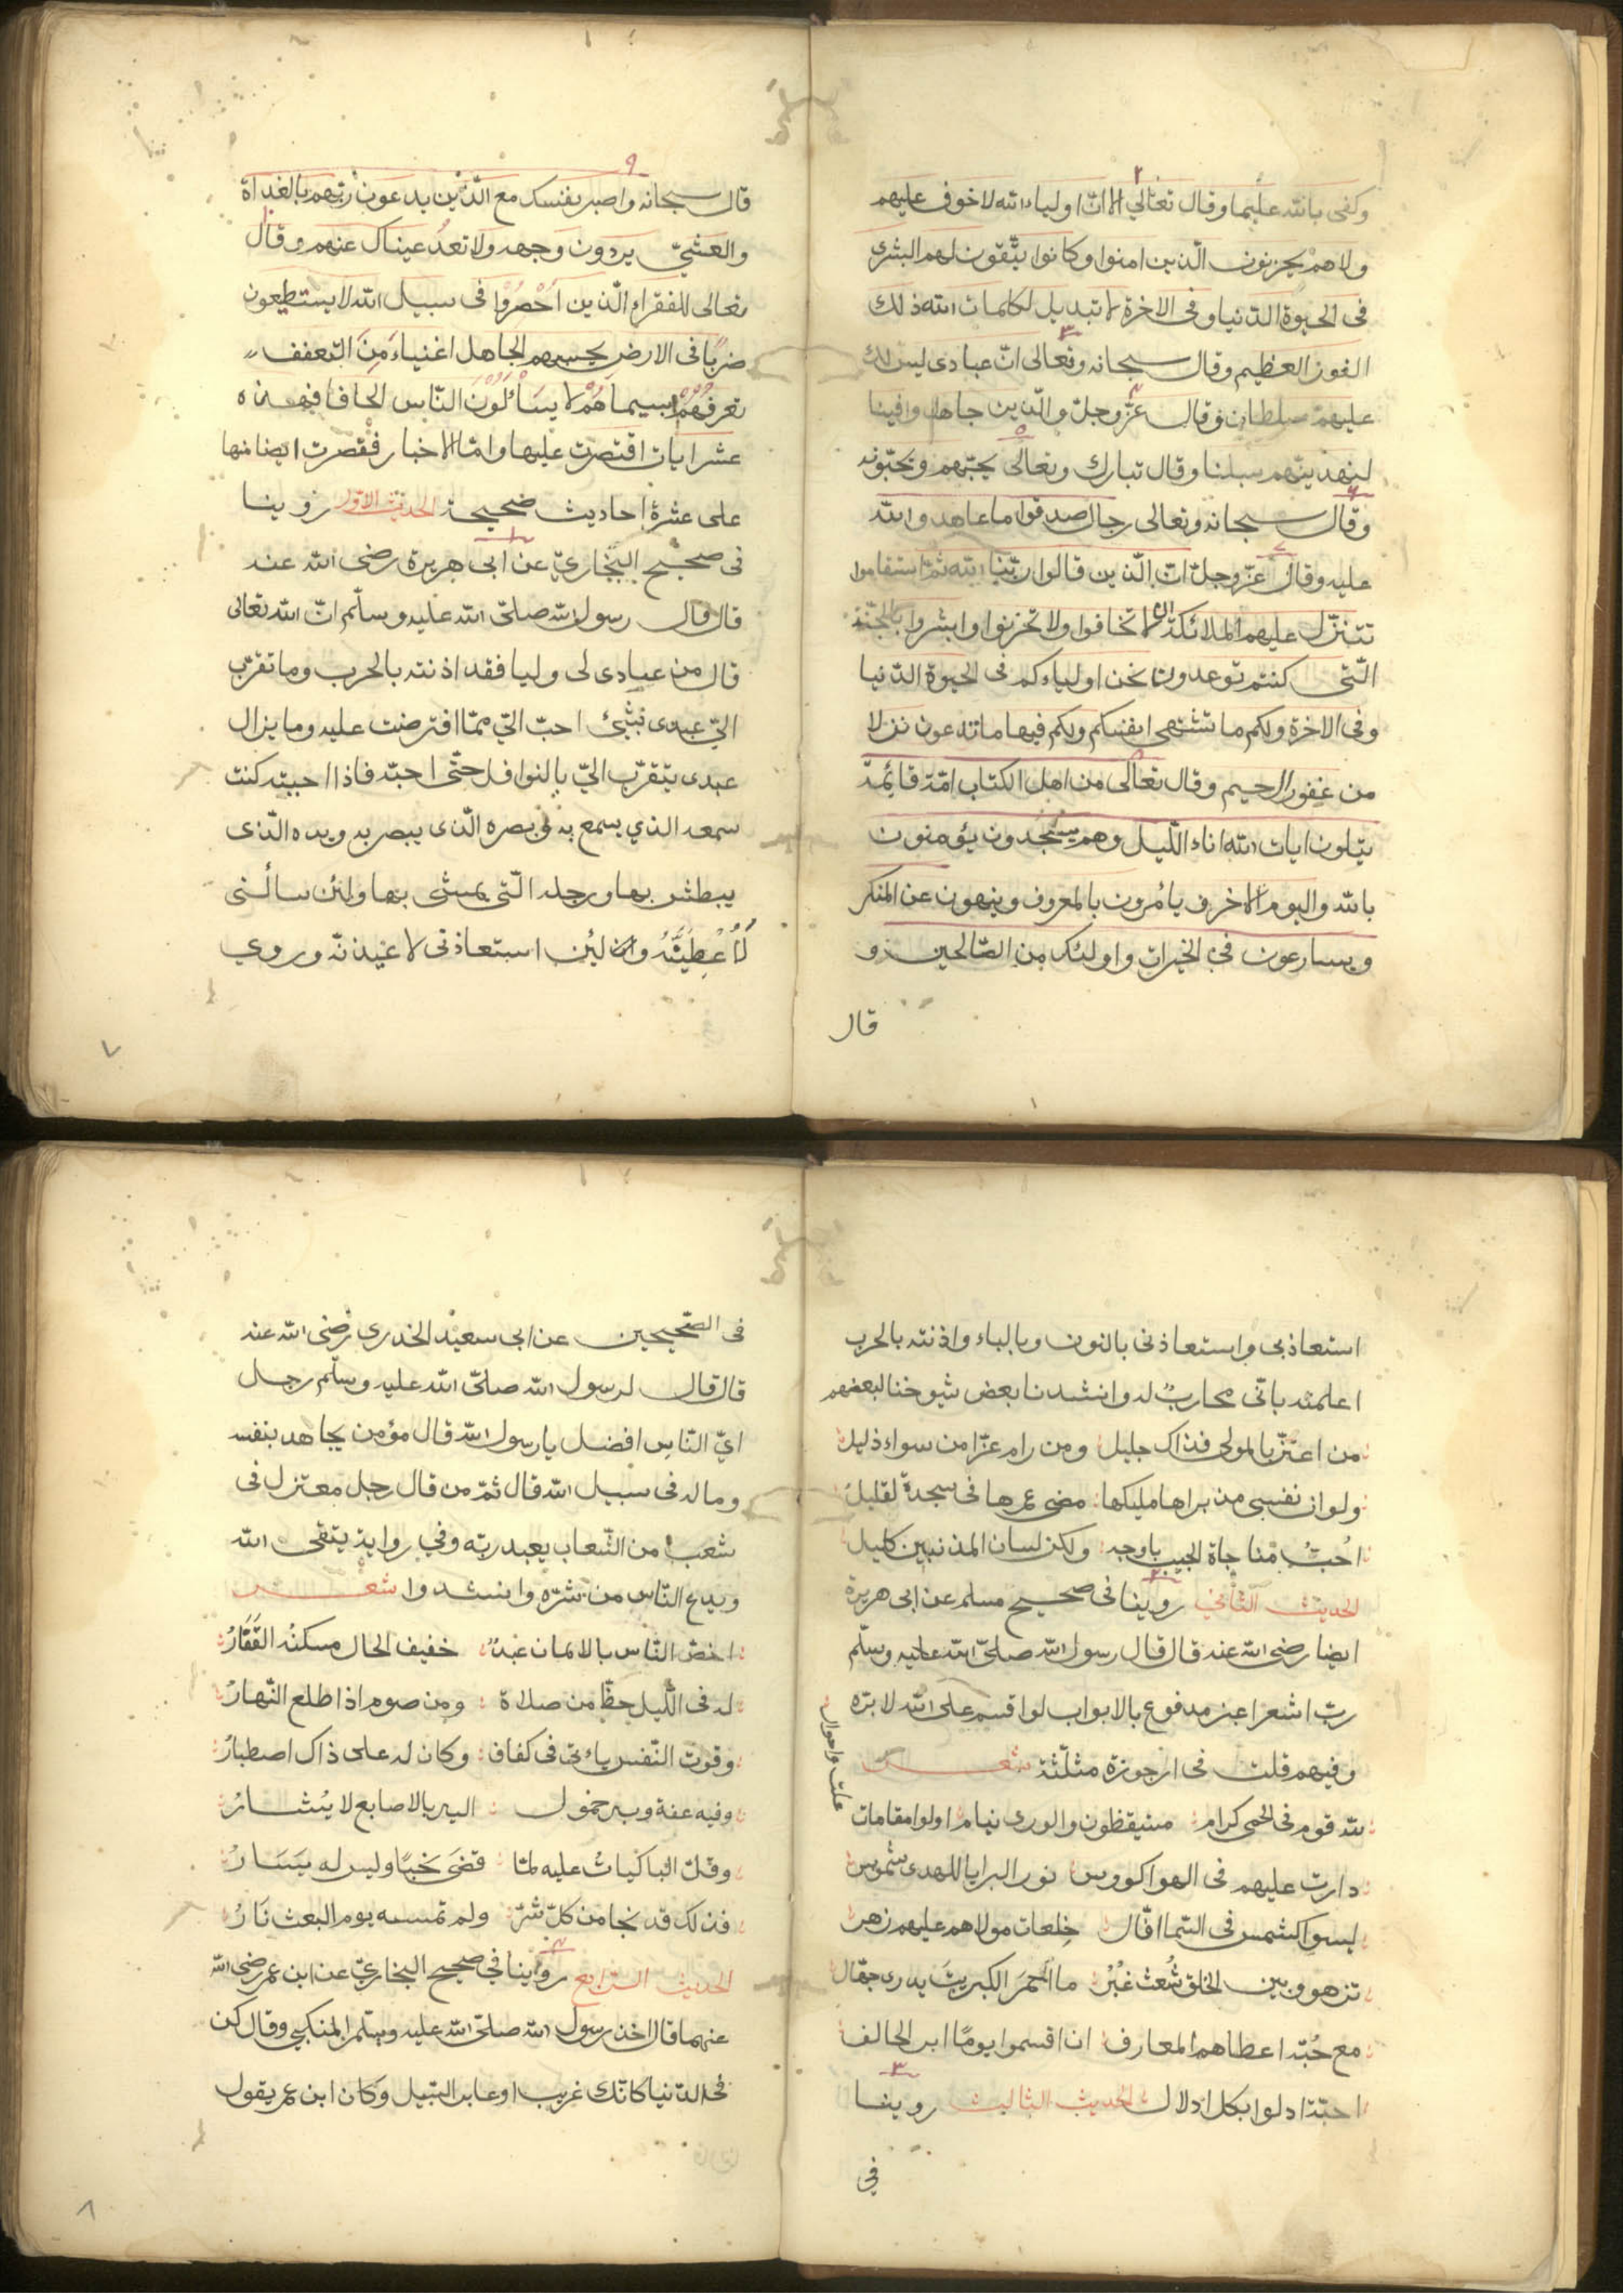 ٢
وكفى بالله عليما وقال تعالى الا انّ اولياء الله لا خوف عليهم
ولاهم يحزنون الّذين امنوا وكانوا يتّقون لهم البشرى
فى الحيوة الدّنيا وفى الاخرة لا تبديل لكلمات الله ذلك
٣
الفوز العظيم وقال سبحانه وتعالى انّ عبادى ليس لك
٤
عليهم سلطان وقال عزّ وجلّ والّذين جاهدوا فينا
٥
لنهدينّهم سبلنا وقال تبارك وتعالى يحبّهم ويحبّونه
٦
وقال سبحانه وتعالى رجال صدقوا ما عاهدوا الله
٧
عليه وقال عزّ وجلّ انّ الّذين قالوا ربّنا الله ثمّ استقاموا
تتنزّل عليهم الملائكة ان لا تخافوا ولا تحزنوا وابشروا بالجنّة
الّتى كنتم توعدون نحن اولياءكم فى الحيوة الدّنيا
وفى الاخرة ولكم ما تشتهى انفسكم ولكم فيها ما تدعون نزلا
٨
من غفور الرحيم وقال تعالى من اهل الكتاب امّة قائمة
يتلون ايات الله اناء اللّيل وهم يسجدون يؤمنون
بالله واليوم الاخر ويأمرون بالمعروف وينهون عن المنكر
ويسارعون فى الخيرات واولئك من الصّالحين و
قال
٩
قال سبحانه واصبر نفسك مع الّذين يدعون ربّهم بالغداة
والعشيّ يردون وجهه ولا تعدُ عيناك عنهم وقال
١٠
تعالى للفقراء الّذين اُحْصِرُوا فى سبيل الله لا يستطيعون
ضربًا فى الارض يحسبهم الجاهل اغنياء مِنَ التعفف
تعرفُهُمْ بسيماهُمْ لا يَسَْألُوْنَ النّاس الحافا فهذه
عشر ايات اقتصرت عليها وامّا الاخبار فقصرت ايضا منها
على عشرة احاديث صحيحة الحديث الاوّل روينا
١
فى صحيح البخاريّ عن ابى هريرة رضى الله عنه
قال قال رسول الله صلىّ الله عليه وسلّم انّ الله تعالى
قال من عادى لى وليا فقد اذنته بالحرب وما تقرّب
الىّ عبدى بشئ احبّ الىّ ممّا افترضت عليه وما يزال
عبدى يتقرّب الىّ بالنوافل حتّى احبّه فاذا احببته كنت
سمعه الذي يسمع به وبصره الّذى يبصر به ويده الّذى
يبطش بها ورجله الّتى يمشى بها ولئن سألنى
لَاُعْطِيَنَّهُ ولئن استعاذنى لاعيذنّه وروي
٧
استعاذ بى واستعاذنى بالنون وبالباء واذنته بالحرب
اعلمته بانّى محاربٌ له وانشدنا بعض شيوخنا لبعضهم
من اعتزّ بالمولى فذاك جليل ومن رام عزّا من سواه ذليل
ولو ان نفسى مذ براها مليكها مضى عمرها فى سجدة لقليل
احُبُّ مناجاة الحبيب باوجه ولكن لسان المذنبين كليل
٢
الحديث الثّاني روينا فى صحيح مسلم عن ابى هريرة
ايضا رضى الله عنه قال قال رسول الله صلىّ الله عليه وسلّم
ربّ اشعر اغبر مدفوع بالابواب لو اقسم على الله لابرّه
وفيهم قلت فى ارجوزة مثلّثة شعـــر
لله قوم فى الحمى كرام متيقظون والورى نيام اولوا مقامات
علت واحوال
دارت عليهم فى الهوا كووس نور البرايا للهدى شموس
ليسوا كشمس فى السّما افّال خِلعات مولاهم عليهم زهر
تزهو وبين الخلق شُعث غُبْر ما احمَرَ الكبريتَ يدرى جهّال
مع حُبّه اعطاهم المعارف ان اقسموا يومًا ابر الحالف
٣
احبّة ادلوا بكل ادلال الحديث الثالث روينا
في
فى الصّحيحين عن ابى سعيد الخدرى رضى الله عنه
قال قال لرسول الله صلىّ الله عليه وسلّم رجل
ايّ النّاس افضل يا رسول الله قال مؤمن يجاهد بنفسه
وماله فى سبيل الله قال ثمّ من قال رجل معتزل فى
شعب من الشّعاب يعبد ربّه وفي رواية يتقى الله
ويدع النّاس من شرّه وانشدوا شعـــر
اخصّ النّاس بالايمان عبدٌ خفيف الحال مسكنُه القَفَارُ
له فى اللّيل حظّ من صلاة ومن صوم اذا طلع النّهارُ
وقوت النّفس ياءتى فى كفاف وكان له على ذاك اصطبارُ
وفيه عفة وبه خمول اليه بالاصابع لا يُشارُ
وقلّ الباكياتُ عليه لمّا قضَى نحبًا وليس له يَسَارُ
فذلك قد نجا من كلّ شرّ ولم تمسسه يوم البعث نَارُ
٤
الحديث الرّابع روينا في صحيح البخاريّ عن ابن عمر رضى الله
عنهما قال اخذ رسول الله صلىّ الله عليه وسلّم بمنكبي وقال كن
فى الدّنيا كانّك غريب او عابر السّبيل وكان ابن عمر يقول
٨